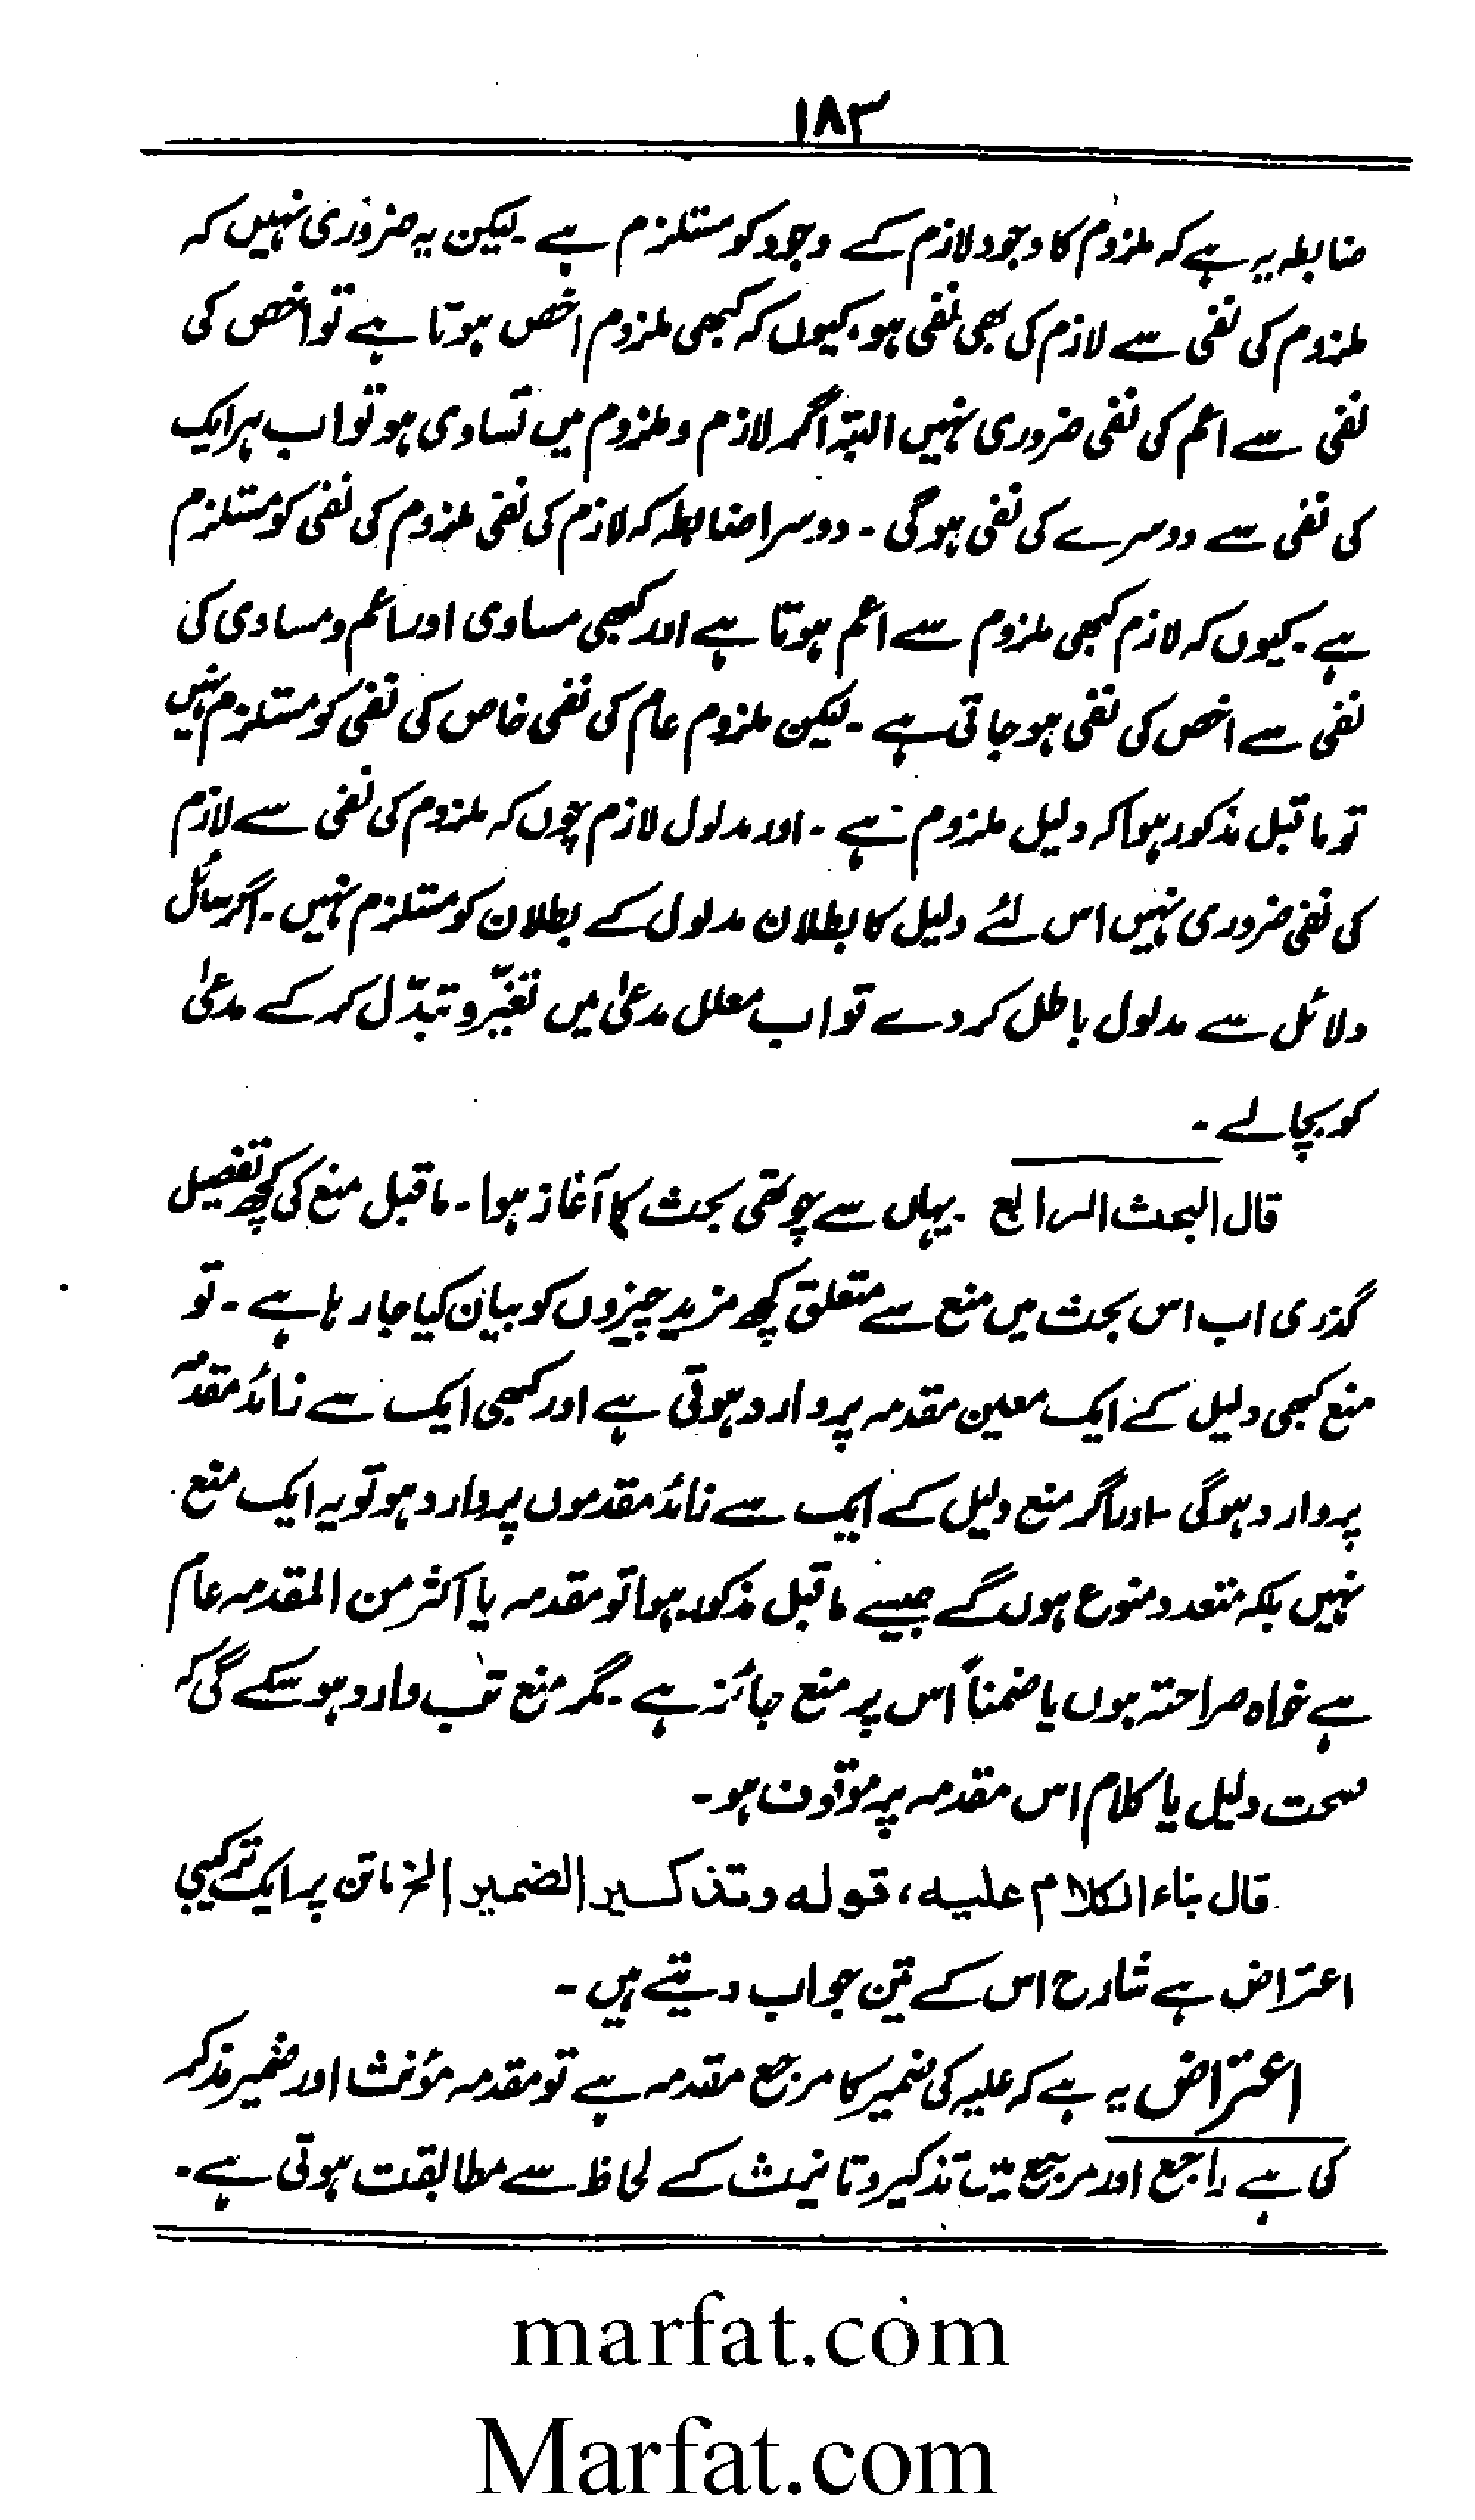 ۱۸۳
ضابطہ یہ ہے کہ ملزوم کا وجود لازم کے وجود کو مستلزم ہے۔ لیکن یہ ضروری نہیں کہ
ملزوم کی نفی سے لازم کی بھی نفی ہو۔ کیوں کہ کبھی ملزوم اخص ہوتا ہے تو اخص کی
نفی سے اعم کی نفی ضروری نہیں البتہ اگر لازم و ملزوم میں تساوی ہو تو اب ہر ایک
کی نفی سے دوسرے کی نفی ہوگی۔ دوسرا ضابطہ کہ لازم کی نفی ملزوم کی نفی کو مستلزم
ہے۔ کیوں کہ لازم کبھی ملزوم سے اعم ہوتا ہے اور کبھی مساوی اور اعم و مساوی کی
نفی سے اخص کی نفی ہو جاتی ہے۔ لیکن ملزوم عام کی نفی خاص کی نفی کو مستلزم نہیں
تو ماقبل مذکور ہوا کہ دلیل ملزوم ہے۔ اور مدلول لازم چوں کہ ملزوم کی نفی سے لازم
کی نفی ضروری نہیں اس لئے دلیل کا بطلان مدلول کے بطلان کو مستلزم نہیں۔ اگر سائل
دلائل سے مدلول باطل کر دے تو اب معلل مدعیٰ میں تغیّر و تبدّل کر کے مدعیٰ
کو بچا لے۔
قال البحث الرابع یہاں سے چوتھی بحث کا آغاز ہوا۔ ماقبل منع کی کچھ تفصیل
گذری اب اس بحث میں منع سے متعلق کچھ مزید چیزوں کو بیان کیا جا رہا ہے۔ تو
منع کبھی دلیل کے ایک معین مقدمہ پر وارد ہوتی ہے اور کبھی ایک سے زائد مقدمہ
پر وارد ہوگی۔ اور اگر منع دلیل کے ایک سے زائد مقدموں پر وارد ہو تو یہ ایک منع
نہیں بلکہ متعدد منوع ہوں گے جیسے ماقبل مذکور ہوا تو مقدمہ یا اکثر من المقدمہ عام
ہے خواہ صراحتہ ہوں یا ضمناً اس پر منع جائز ہے۔ مگر منع تب وارد ہو سکے گی کہ
صحت دلیل یا کلام اس مقدمہ پر موقوف ہو۔
قال بناء الکلام علیہ، قولہ و تذکیر الضمیر الخ ماتن پر ایک ترکیبی
اعتراض ہے شارح اس کے تین جواب دیتے ہیں۔
اعتراض یہ ہے کہ علیہ کی ضمیر کا مرجع مقدمہ ہے تو مقدمہ مؤنث اور ضمیر مذکر
کی ہے راجع اور مرجع میں تذکیر و تانیث کے لحاظ سے مطابقت ہوتی ہے۔
marfat.com
Marfat.com